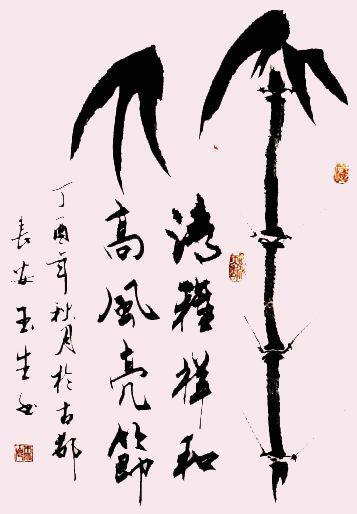 清雅祥和
高風亮節
丁酉年秋月於古都
長安玉生